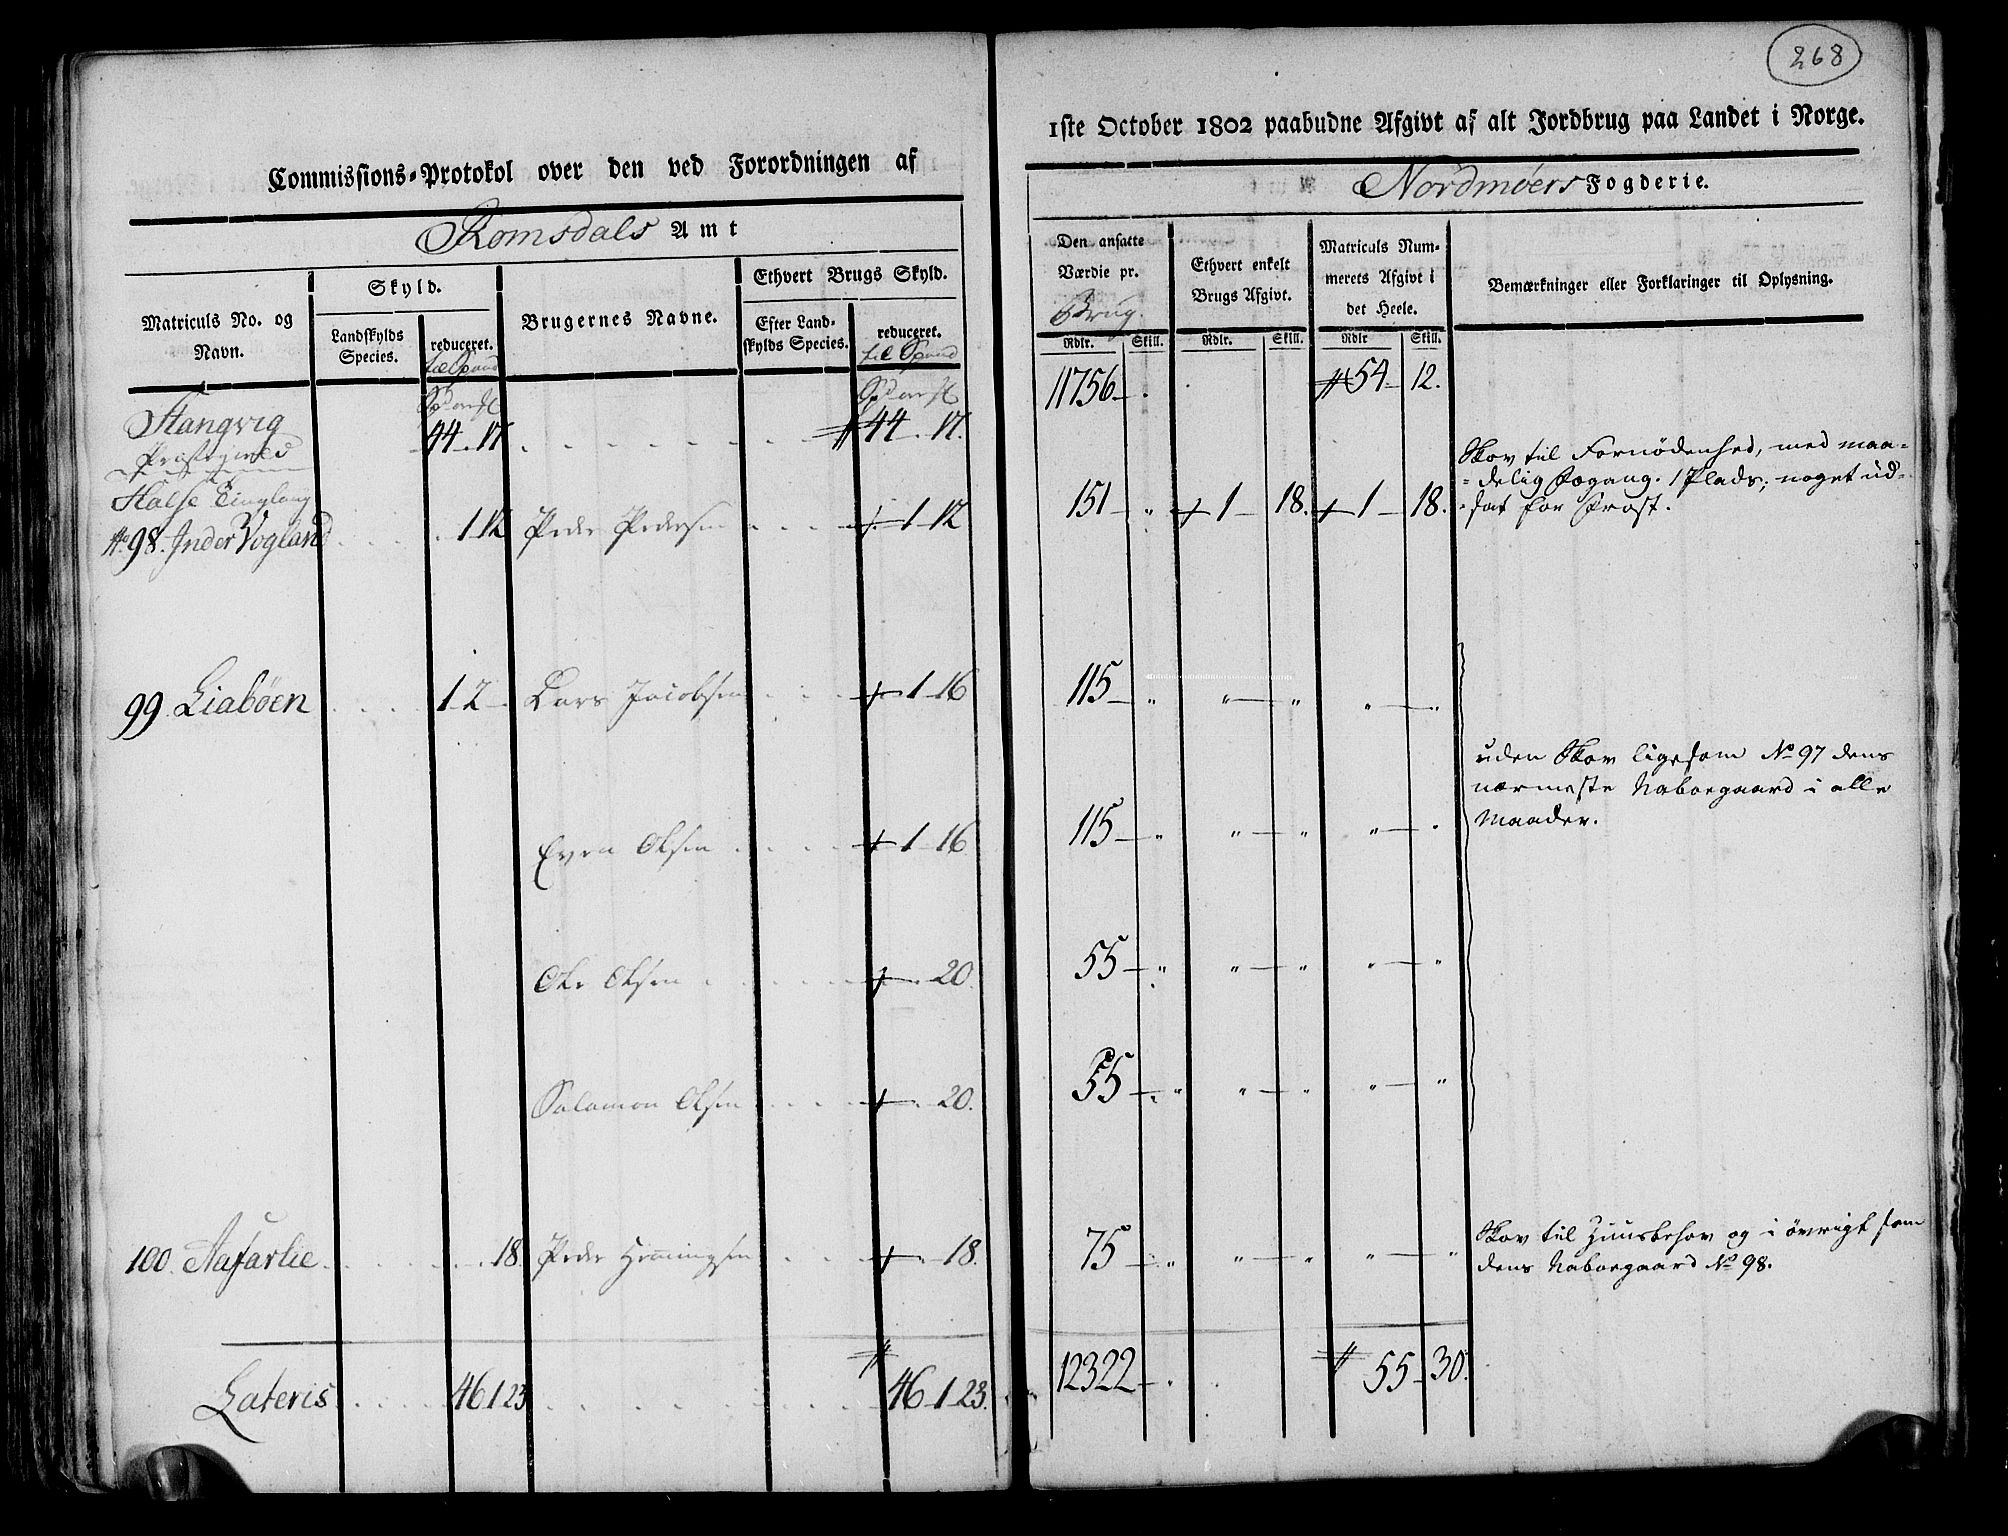 268
Commissions-Protokol over den ved Forordningen af
1ste October 1802 paabudne Afgivt af alt Jordbrug paa Landet i Norge.
Romsdals Amt
Nordmöers Fogderie.
Matriculs No. og Navn.
Skyld.
Landskylds Species.
reduceret. til Spand
Brugernes Navne.
Ethvert Brugs Skyld.
Efter Landskylds Species.
reduceret. til Spand
Den ansatte Værdie pr. Brug.
Rdlr. Skill.
Ethvert enkelt Brugs Afgivt.
Rdlr. Skill.
Matriculs Nummerets Afgivt i det Heele.
Rdlr Skill.
Bemærkninger eller Forklaringer til Oplysning.
Stangvig
Præstegield 44 " 17 44 " 17. 11756 54 12.
Halse Tinglaug
No 98. Inder Vogland 1 12 Peder Pedersen 1 12 151 " 1 18. 1 18.
Skov til Fornødenhed, med maa-
delig Havgang. 1 Plads, noget ud-
sat for Frost.
99 Liabøen 1 2 Lars Jacobsen 1 16 115 " " " " "
Even Olsen 1 16 115 " " " " "
uden Skov ligesom No 97 dens
nærmeste Naboegaard i alle
Maader.
Ole Olsen 20 55 " " " " "
Salamon Olsen 20. 55 " " " " "
100. Aafarlie 18. Peder Hemmingsen 18. 75 " " " " "
Skov til Huusbehov og i övrigt som
dens Naboegaard No 98.
Lateris 46 1 23 46 1 23. 12322 55 30.